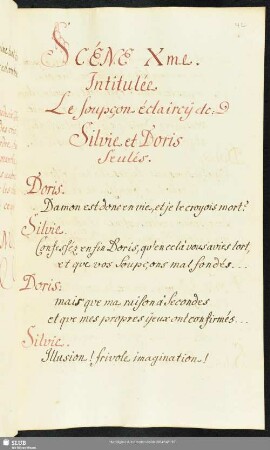 SCÉNE Xme.
Intitulée
Le soupçon éclaircÿ etc.
Silvie et Doris
seules.
Doris.
Damon est donc en vie, et je le croyois mort?
Silvie.
Confessez enfin Doris, qu'en cela vous aviés tort,
et que vos soupçons mal fondés...
Doris:
mais que ma raison a secondés
et que mes propres ÿeux ont confirmés...
Silvie.
Illusion! frivole imagination!
SLUB